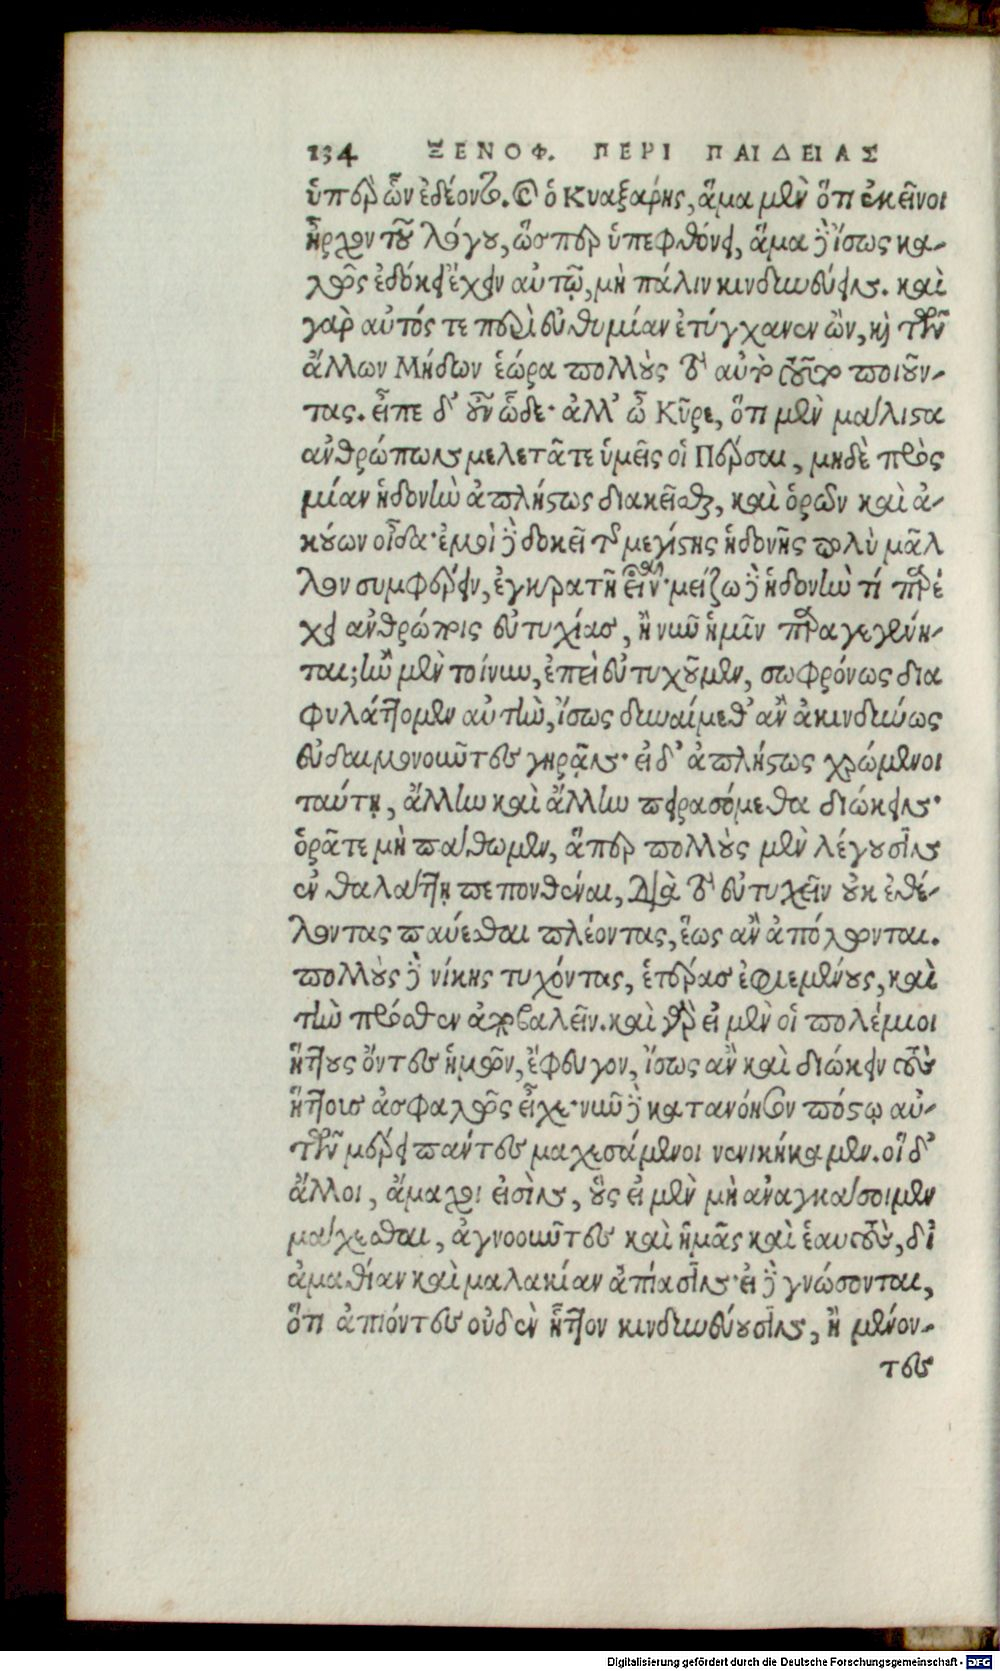 134 ΞΕΝΟΦ. ΠΕΡΙ ΠΑΙΔΕΙΑΣ
ὑπὲρ ὧν ἐδέοντο. καὶ ὁ Κυαξάρης, ἅμα μὲν ὅτι ἐκεῖνοι
ἦρχον τοῦ λόγου, ὥσπερ ὑπεφθόνει, ἅμα δὲ ἴσως κα-
λῶς ἐδόκει ἔχειν αὐτῷ, μὴ πάλιν κινδυνεύειν. καὶ
γὰρ αὐτός τε περὶ εὐθυμίαν ἐτύγχανεν ὢν, καὶ τῶν
ἄλλων Μήδων ἑώρα πολλοὺς τὸ αὐτὸ τοῦτο ποιοῦν-
τας. εἶπε δ' οὖν ὧδε· ἀλλ' ὦ Κῦρε, ὅτι μὲν μάλιστα
ἀνθρώπων μελετᾶτε ὑμεῖς οἱ Πέρσαι, μηδὲ πρὸς
μίαν ἡδονὴν ἀπλήστως διακεῖσθαι, καὶ ὁρῶν καὶ ἀ-
κούων οἶδα· ἐμοὶ δὲ δοκεῖ τῆς μεγίστης ἡδονῆς πολὺ μᾶλ
λον συμφέρειν, ἐγκρατῆ εἶναι· μείζω δὲ ἡδονὴν τί παρέ
χει ἀνθρώποις εὐτυχίας, ἢ νῦν ἡμῖν παραγεγένη-
ται; ἢν μὲν τοίνυν, ἐπεὶ εὐτυχοῦμεν, σωφρόνως δια
φυλάττομεν αὐτὴν, ἴσως δυναίμεθ' ἂν ἀκινδύνως
εὐδαιμονοῦντες γηρᾷν· εἰ δ' ἀπλήστως χρώμενοι
ταύτῃ, ἄλλην καὶ ἄλλην πειρασόμεθα διώκειν·
ὁρᾶτε μὴ πάθωμεν, ἅπερ πολλοὺς μὲν λέγουσιν
ἐν θαλάττῃ πεπονθέναι, διὰ τὸ εὐτυχεῖν οὐκ ἐθέ-
λοντας παύεσθαι πλέοντας, ἕως ἂν ἀπόλωνται.
πολλοὺς δὲ νίκης τυχόντας, ἑτέρας ἐφιεμένους, καὶ
τὴν πρόσθεν ἀποβαλεῖν. καὶ γὰρ εἰ μὲν οἱ πολέμιοι
ἥττους ὄντες ἡμῶν, ἔφευγον, ἴσως ἂν καὶ διώκειν τοὺς
ἥττους ἀσφαλῶς εἶχε· νῦν δὲ κατανόησον πόστῳ αὐ-
τῶν μέρει πάντες μαχεσάμενοι νενικήκαμεν. οἱ δ'
ἄλλοι, ἄμαχοι εἰσὶν, οὓς εἰ μὲν μὴ ἀναγκάσοιμεν
μάχεσθαι, ἀγνοοῦντες καὶ ἡμᾶς καὶ ἑαυτοὺς, δι'
ἀμαθίαν καὶ μαλακίαν ἀπίασιν· εἰ δὲ γνώσονται,
ὅτι ἀπιόντες οὐδὲν ἧττον κινδυνεύουσιν, ἢ μένον-
τες
Digitalisierung gefördert durch die Deutsche Forschungsgemeinschaft - DFG